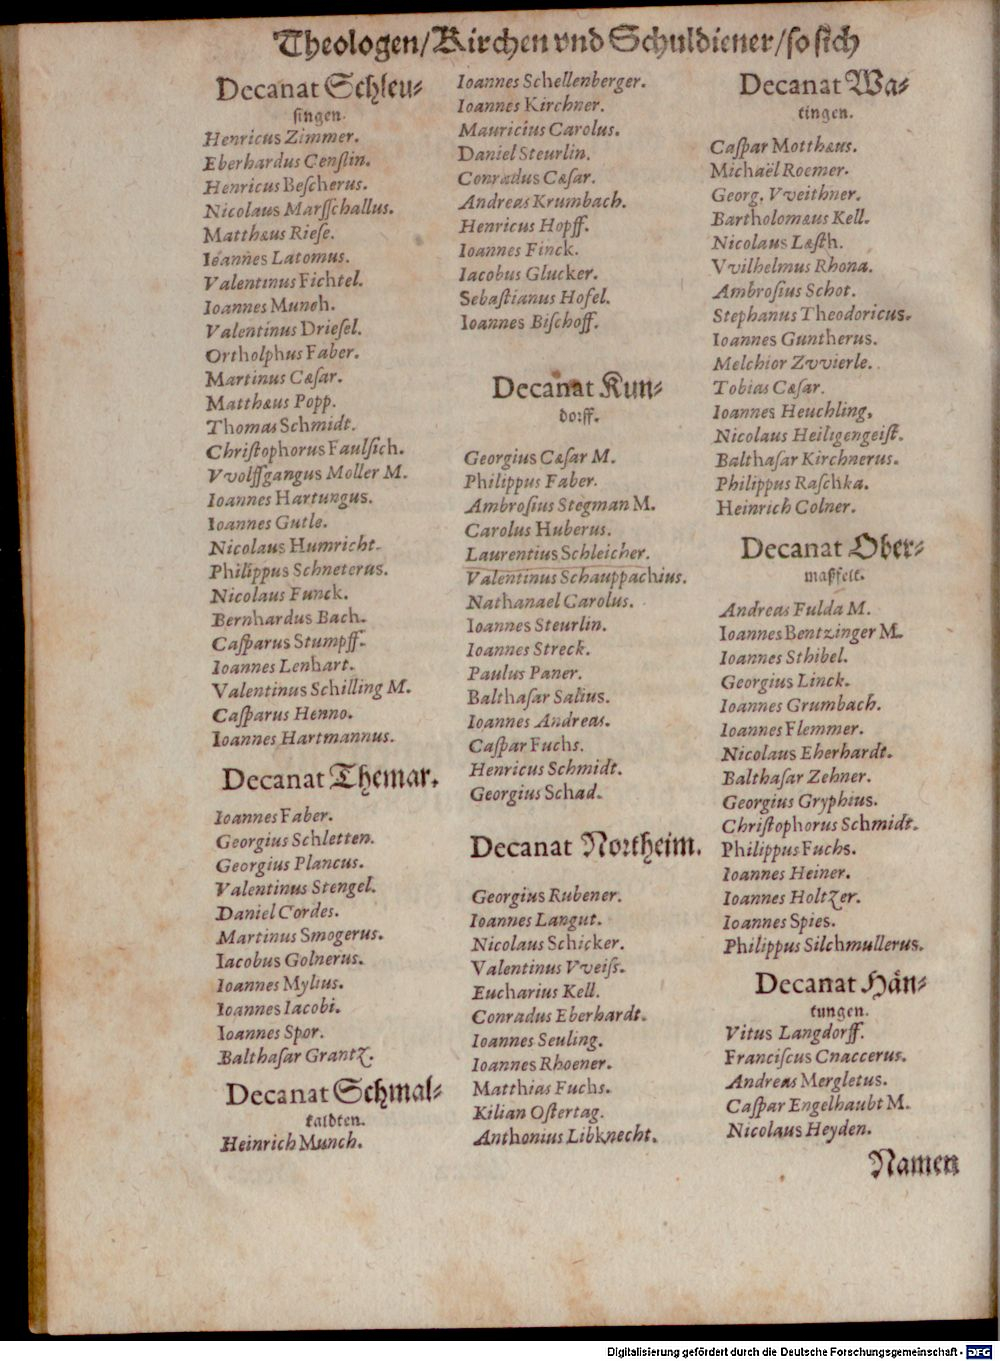 Theologen/Kirchen vnd Schuldiener/so sich
Decanat Schleu⸗
singen.
Henricus Zimmer.
Eberhardus Censlin.
Henricus Beſcherus.
Nicolaus Marſſchallus.
Matthæus Rieſe.
Ioannes Latomus.
Valentinus Fichtel.
Ioannes Munch.
Valentinus Drieſel.
Ortholphus Faber.
Martinus Cæſar.
Matthæus Popp.
Thomas Schmidt.
Chriſtophorus Faulſich.
Vvolffgangus Moller M.
Ioannes Hartungus.
Ioannes Gutle.
Nicolaus Humricht.
Philippus Schneterus.
Nicolaus Funck.
Bernhardus Bach.
Caſparus Stumpff.
Ioannes Lenhart.
Valentinus Schilling M.
Caſparus Henno.
Ioannes Hartmannus.
Decanat Themar.
Ioannes Faber.
Georgius Schletten.
Georgius Plancus.
Valentinus Stengel.
Daniel Cordes.
Martinus Smogerus.
Iacobus Golnerus.
Ioannes Mylius.
Ioannes Iacobi.
Ioannes Spor.
Balthaſar Grantz.
Decanat Schmal⸗
kaldten.
Heinrich Munch.
Ioannes Schellenberger.
Ioannes Kirchner.
Mauricius Carolus.
Daniel Steurlin.
Conradus Cæſar.
Andreas Krumbach.
Henricus Hopff.
Ioannes Finck.
Iacobus Glucker.
Sebaſtianus Hofel.
Ioannes Biſchoff.
Decanat Kun⸗
dorff.
Georgius Cæſar M.
Philippus Faber.
Ambroſius Stegman M.
Carolus Huberus.
Laurentius Schleicher.
Valentinus Schauppachius.
Nathanael Carolus.
Ioannes Steurlin.
Ioannes Streck.
Paulus Paner.
Balthaſar Salius.
Ioannes Andreas.
Caſpar Fuchs.
Henricus Schmidt.
Georgius Schad.
Decanat Northeim.
Georgius Rubener.
Ioannes Langut.
Nicolaus Schicker.
Valentinus Vveiſs.
Eucharius Kell.
Conradus Eberhardt.
Ioannes Seuling.
Ioannes Rhoener.
Matthias Fuchs.
Kilian Oſtertag.
Anthonius Libknecht.
Decanat Wa⸗
tingen.
Caſpar Motthæus.
Michaël Roemer.
Georg. Vveithner.
Bartholomæus Kell.
Nicolaus Læſth.
Vvilhelmus Rhona.
Ambroſius Schot.
Stephanus Theodoricus.
Ioannes Guntherus.
Melchior Zvvierle.
Tobias Cæſar.
Ioannes Heuchling.
Nicolaus Heiligengeiſt.
Balthaſar Kirchnerus.
Philippus Raſchka.
Heinrich Colner.
Decanat Ober⸗
maßfelt.
Andreas Fulda M.
Ioannes Bentzinger M.
Ioannes Sthibel.
Georgius Linck.
Ioannes Grumbach.
Ioannes Flemmer.
Nicolaus Eberhardt.
Balthaſar Zehner.
Georgius Gryphius.
Chriſtophorus Schmidt.
Philippus Fuchs.
Ioannes Heiner.
Ioannes Holtzer.
Ioannes Spies.
Philippus Silchmullerus.
Decanat Hän⸗
tungen.
Vitus Langdorff.
Franciſcus Cnaccerus.
Andreas Mergletus.
Caſpar Engelhaubt M.
Nicolaus Heyden.
Namen
Digitalisierung gefördert durch die Deutsche Forschungsgemeinschaft - DFG